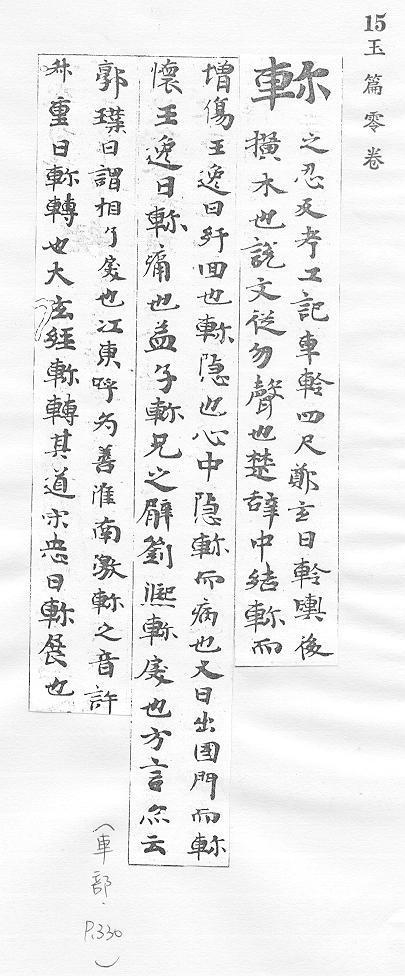 15 玉篇零卷
軫
之忍反考工記車軫四尺鄭玄曰軫輿後
撗木也說文從勿聲也楚辞中結軫而
増傷王逸曰紆回也軫隠也心中隠軫而病也又曰出國門而軫
懷王逸曰軫痛也孟子軫兄之臂劉熈軫戾也方言亦云
郭璞曰謂相了戾也江東呼为善淮南激軫之音許
叔重曰軫轉也大玄経軫轉其道宋忠曰軫展也
(車部.P.330)